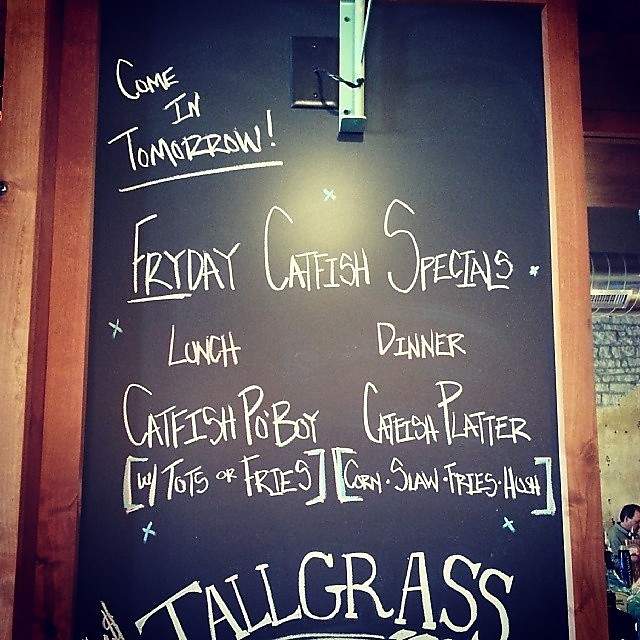 COME
IN
TOMORROW!
FRYDAY CATFISH SPECIALS
LUNCH DINNER
CATFISH PO'BOY CATFISH PLATTER
[W/ TOTS OR FRIES] [CORN · SLAW · FRIES · HUSH]
TALLGRASS